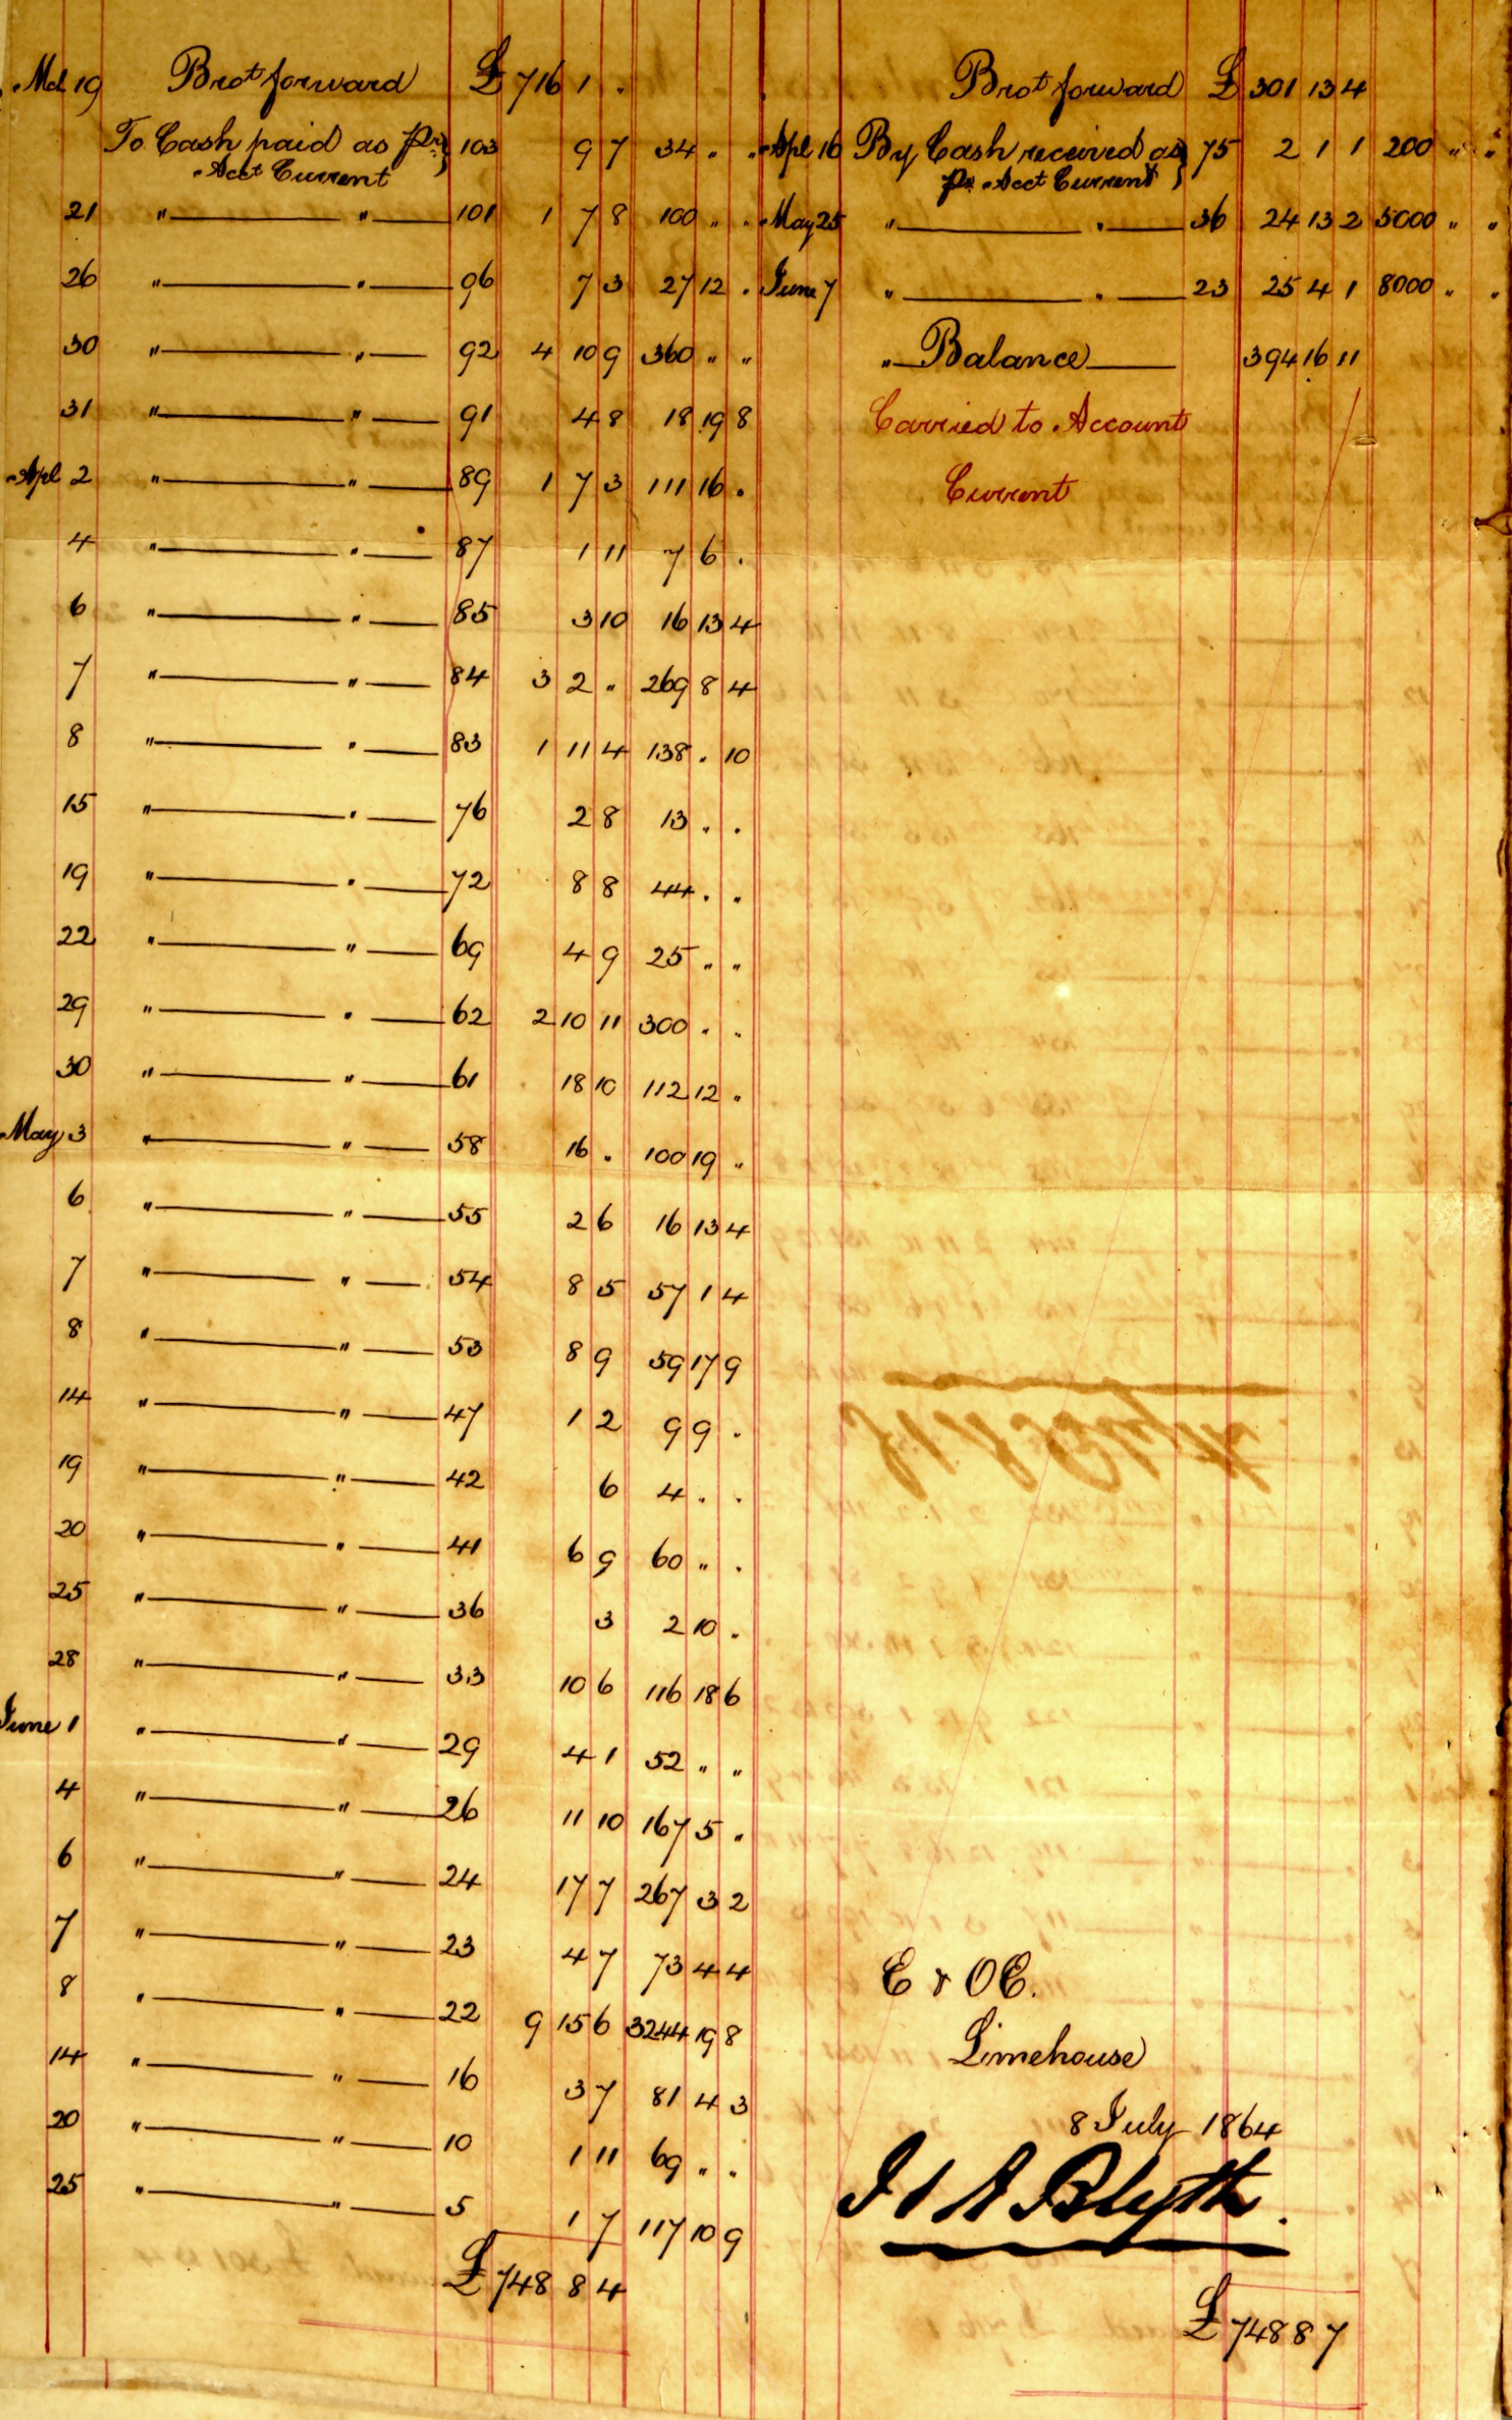 Mch 19 Brot forward £ 716 1 .
To Cash paid as pr Acct Current } 103 9 7 34 . .
21 " " 101 1 7 8 100 " .
26 " " 96 7 3 27 12 .
30 " " 92 4 10 9 360 " "
31 " " 91 4 8 18 19 8
Apl 2 " " 89 1 7 3 111 16 .
4 " " 87 1 11 7 6 .
6 " " 85 3 10 16 13 4
7 " " 84 3 2 " 269 8 4
8 " " 83 1 11 4 138 . 10
15 " " 76 2 8 13 . .
19 " " 72 8 8 44 . .
22 " " 69 4 9 25 " "
29 " " 62 2 10 11 300 . .
30 " " 61 18 10 112 12 "
May 3 " " 58 16 . 100 19 "
6 " " 55 2 6 16 13 4
7 " " 54 8 5 57 1 4
8 " " 53 8 9 59 17 9
14 " " 47 1 2 9 9 .
19 " " 42 6 4 . .
20 " " 41 6 9 60 " .
25 " " 36 3 2 10 .
28 " " 33 10 6 116 18 6
June 1 " " 29 4 1 52 " "
4 " " 26 11 10 167 5 "
6 " " 24 17 7 267 3 2
7 " " 23 4 7 73 4 4
8 " " 22 9 15 6 3244 19 8
14 " " 16 3 7 81 4 3
20 " " 10 1 11 69 " .
25 " " 5 1 7 117 10 9
£ 748 8 4
Brot forward £ 301 13 4
Apl 16 By Cash received as pr Acct Current } 75 2 1 1 200 " "
May 25 " " 36 24 13 2 5000 " "
June 7 " " 23 25 4 1 8000 " "
" Balance 394 16 11
Carried to Account
Current
E & OE.
Limehouse
8 July 1864
J & A Blyth.
£ 748 8 7